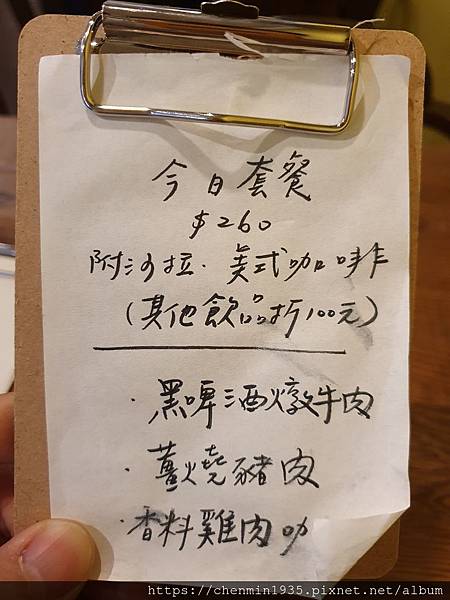 今日套餐
$260
附沙拉.美式咖啡
(其他飲品折100元)
·黑啤酒燉牛肉
·薑燒豬肉
·香料雞肉咖
https://chenmin1935.pixnet.net/album